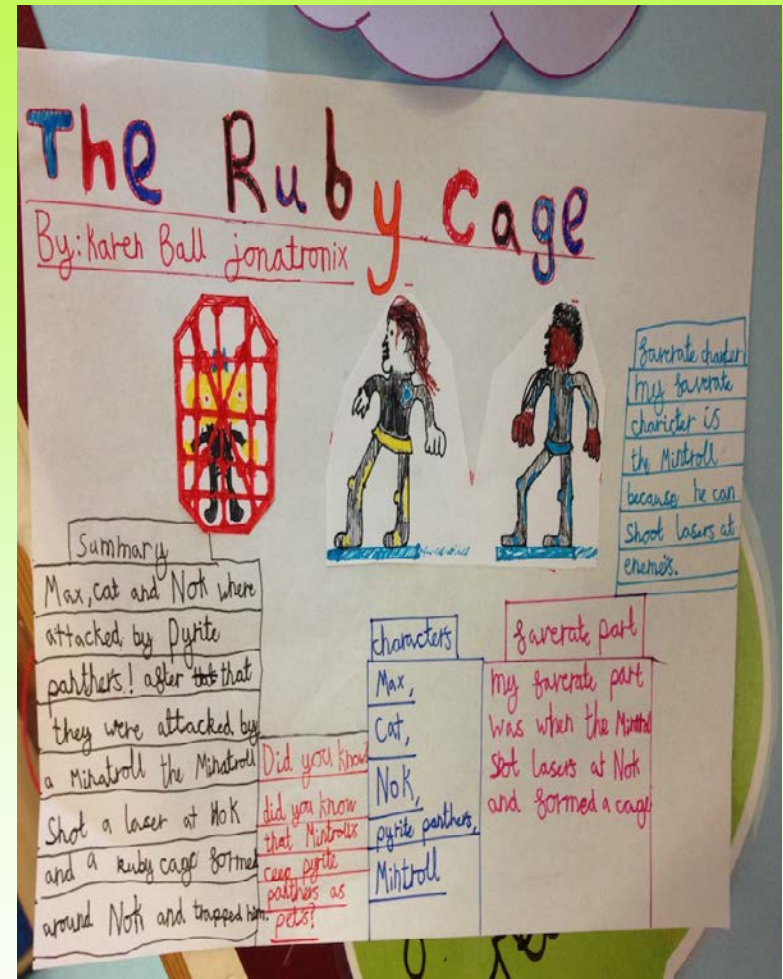 The Ruby Cage
By: Karen Ball jonatronix
faverate charter
my faverate
charicter is
the Mintroll
because he can
Shoot lasers at
enemeis.
Summary
Max, cat and Nok where
attacked by Pyrite
panthers! after that
they were attacked by
a Minatroll the Minatroll
Shot a laser at Nok
and a Ruby cage formed
around Nok and trapped him.
Did you know
did you know
that Mintrolls
ceep pyrite
panthers as
pets?
characters
Max,
Cat,
Nok,
pyrite panthers,
Mintroll
faverate part
my faverate part
was when the
shot lasers at Nok
and formed a cage